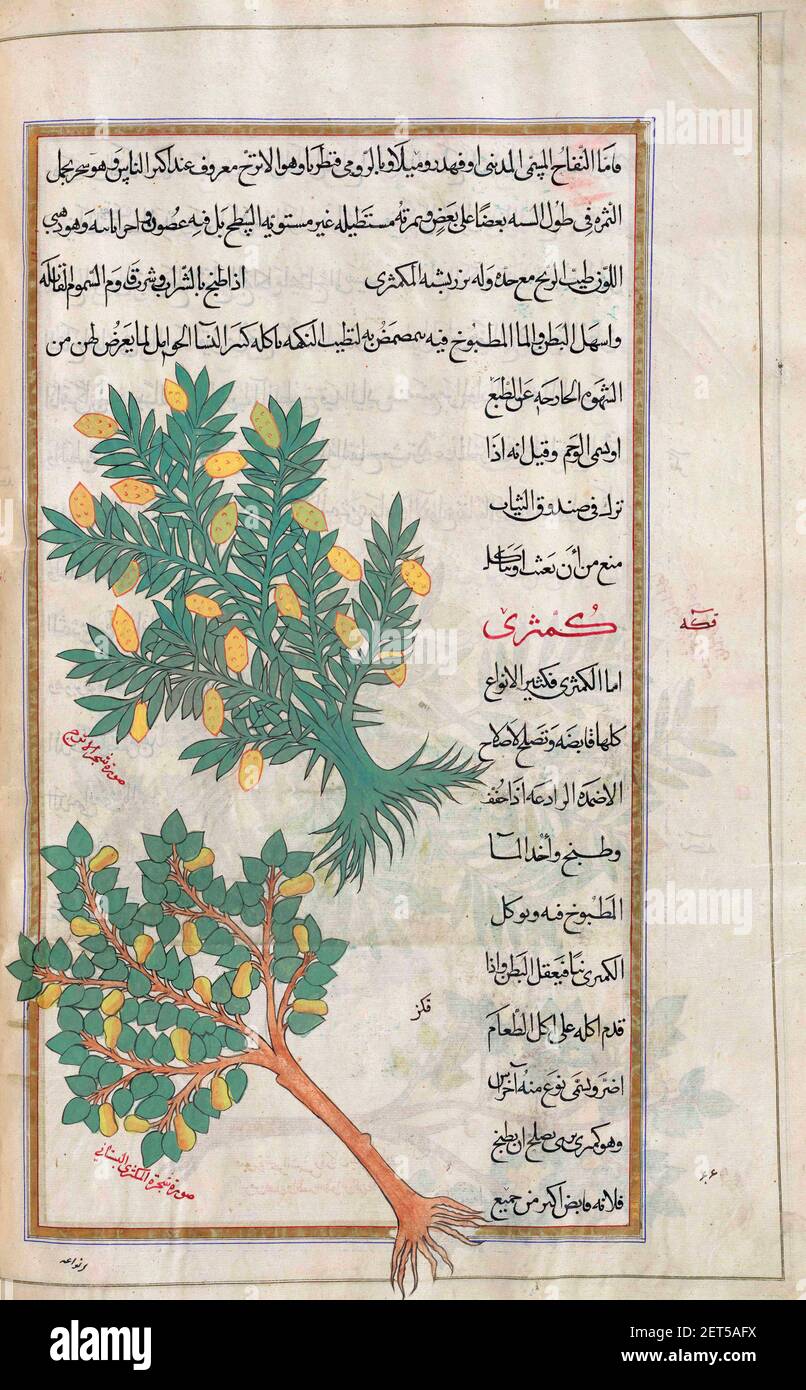 فاما التفاح المسمى المدنى اوفهدروميلا وبالرومى قتطربا وهو الاترج معروف عند اكثر الناس وهو شجر يحمل
الثمره فى طول السنه بعضا على بعض وثمرته مستطيله غير مستويه السطح بل فيه غصون واحراباسه وهو ذهبى
اللون طيب الريح مع حده وله بزر يشبه الكمثرى اذا طبخ بالشراب وشرب قاوم السموم القاتله
واسهل البطن والما المطبوخ فيه يتمضمض به لتطيب النكهه ياكله كثير النسا الحوامل لما يعرض لهن من
الشهوه الخارجه عن الطبع
اويسمى الوحم وقيل انه اذا
ترك فى صندوق الثياب
منع من أن يعث اويتاكل
كُمثرى
اما الكمثرى فكثير الانواع
كلها قابضه وتصلح لاصلاح
الاضمده الرادعه اذا خفف
وطبخ وأخذ المآ
المطبوخ فيه ويوكل
الكمثرى نيا فيعقل البطن واذا
قدم اكله على اكل الطعام
اضر ويسمى نوع منه آخراس
وهو كمثرى برى يصلح ان يطبخ
فلانه قابض اكثر من جميع
صورة شجر الاترج
صورة شجرة الكمثرى البستانى
فكه
فكز
انواعه
alamy
alamy
alamy
alamy
Image ID: 2ET5AFX
www.alamy.com